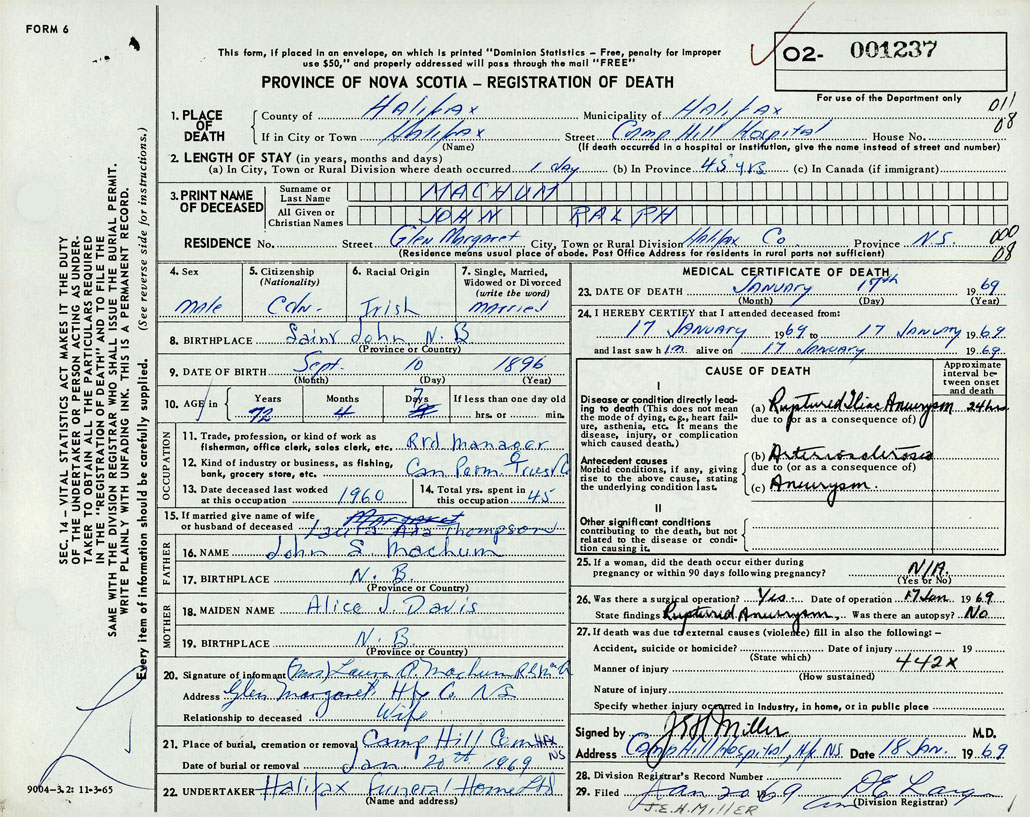 FORM 6
This form, if placed in an envelope, on which is printed "Dominion Statistics – Free, penalty for improper
use $50," and properly addressed will pass through the mail "FREE"
02- 001237
PROVINCE OF NOVA SCOTIA – REGISTRATION OF DEATH
For use of the Department only
011
08
1. PLACE OF DEATH
County of Halifax Municipality of Halifax
If in City or Town Halifax Street Camp Hill Hospital House No.
(Name) (If death occurred in a hospital or institution, give the name instead of street and number)
2. LENGTH OF STAY (in years, months and days)
(a) In City, Town or Rural Division where death occurred 1 day (b) In Province 45 yrs (c) In Canada (if immigrant)
3. PRINT NAME OF DECEASED
Surname or Last Name MACHUM
All Given or Christian Names JOHN RALPH
RESIDENCE No. Street Glen Margaret City, Town or Rural Division Halifax Co Province N.S.
(Residence means usual place of abode. Post Office Address for residents in rural parts not sufficient)
000
08
4. Sex
male
5. Citizenship
(Nationality)
Cdn.
6. Racial Origin
Irish
7. Single, Married,
Widowed or Divorced
(write the word)
married
8. BIRTHPLACE Saint John N.B
(Province or Country)
9. DATE OF BIRTH Sept. 10 1896
(Month) (Day) (Year)
10. AGE in Years Months Days If less than one day old
72 4 7 hrs. or min.
OCCUPATION
11. Trade, profession, or kind of work as
fisherman, office clerk, sales clerk, etc. Rtd Manager
12. Kind of industry or business, as fishing,
bank, grocery store, etc. Can Perm. & Trust Co
13. Date deceased last worked
at this occupation 1960
14. Total yrs. spent in
this occupation 45
15. If married give name of wife
or husband of deceased Margaret Laura Ada Thompson
FATHER
16. NAME John S Machum
17. BIRTHPLACE N. B.
(Province or Country)
MOTHER
18. MAIDEN NAME Alice J. Davis
19. BIRTHPLACE N. B.
(Province or Country)
20. Signature of informant (Mrs) Laura A. Machum
Address Glen Margaret Hfx Co. NS
Relationship to deceased Wife
21. Place of burial, cremation or removal Camp Hill Cem HFX NS
Date of burial or removal Jan 20th 1969
22. UNDERTAKER Halifax Funeral Home Ltd
(Name and address)
MEDICAL CERTIFICATE OF DEATH
23. DATE OF DEATH January 17th 1969
(Month) (Day) (Year)
24. I HEREBY CERTIFY that I attended deceased from:
17 January 1969 to 17 January 1969
and last saw him alive on 17 January 1969
CAUSE OF DEATH
Approximate interval between onset and death
I
Disease or condition directly leading to death (This does not mean the mode of dying, e.g., heart failure, asthenia, etc. It means the disease, injury, or complication which caused death.)
(a) Ruptured Iliac Aneurysm 24 hrs
due to (or as a consequence of)
Antecedent causes
Morbid conditions, if any, giving rise to the above cause, stating the underlying condition last.
(b) Arteriosclerosis
due to (or as a consequence of)
(c) Aneurysm.
II
Other significant conditions
contributing to the death, but not related to the disease or condition causing it.
25. If a woman, did the death occur either during
pregnancy or within 90 days following pregnancy? N/A.
(Yes or No)
26. Was there a surgical operation? Yes. Date of operation 17 Jan 1969
State findings Ruptured Aneurysm. Was there an autopsy? No
27. If death was due to external causes (violence) fill in also the following: –
Accident, suicide or homicide? Date of injury 19
(State which)
Manner of injury 442X
(How sustained)
Nature of injury
Specify whether injury occurred in industry, in home, or in public place
Signed by J E H Miller M.D.
Address Camp Hill Hospital, Hfx NS Date 18 Jan. 1969
28. Division Registrar's Record Number
29. Filed Jan 20 1969
(Division Registrar)
J.E.H. MILLER
SEC. 14 – VITAL STATISTICS ACT MAKES IT THE DUTY
OF THE UNDERTAKER OR PERSON ACTING AS UNDER-
TAKER TO OBTAIN ALL THE PARTICULARS REQUIRED
IN THE "REGISTRATION OF DEATH" AND TO FILE THE
SAME WITH THE DIVISION REGISTRAR WHO SHALL ISSUE THE BURIAL PERMIT.
WRITE PLAINLY WITH UNFADING INK. THIS IS A PERMANENT RECORD.
Every item of information should be carefully supplied. (See reverse side for instructions.)
9004-3.2: 11-3-65